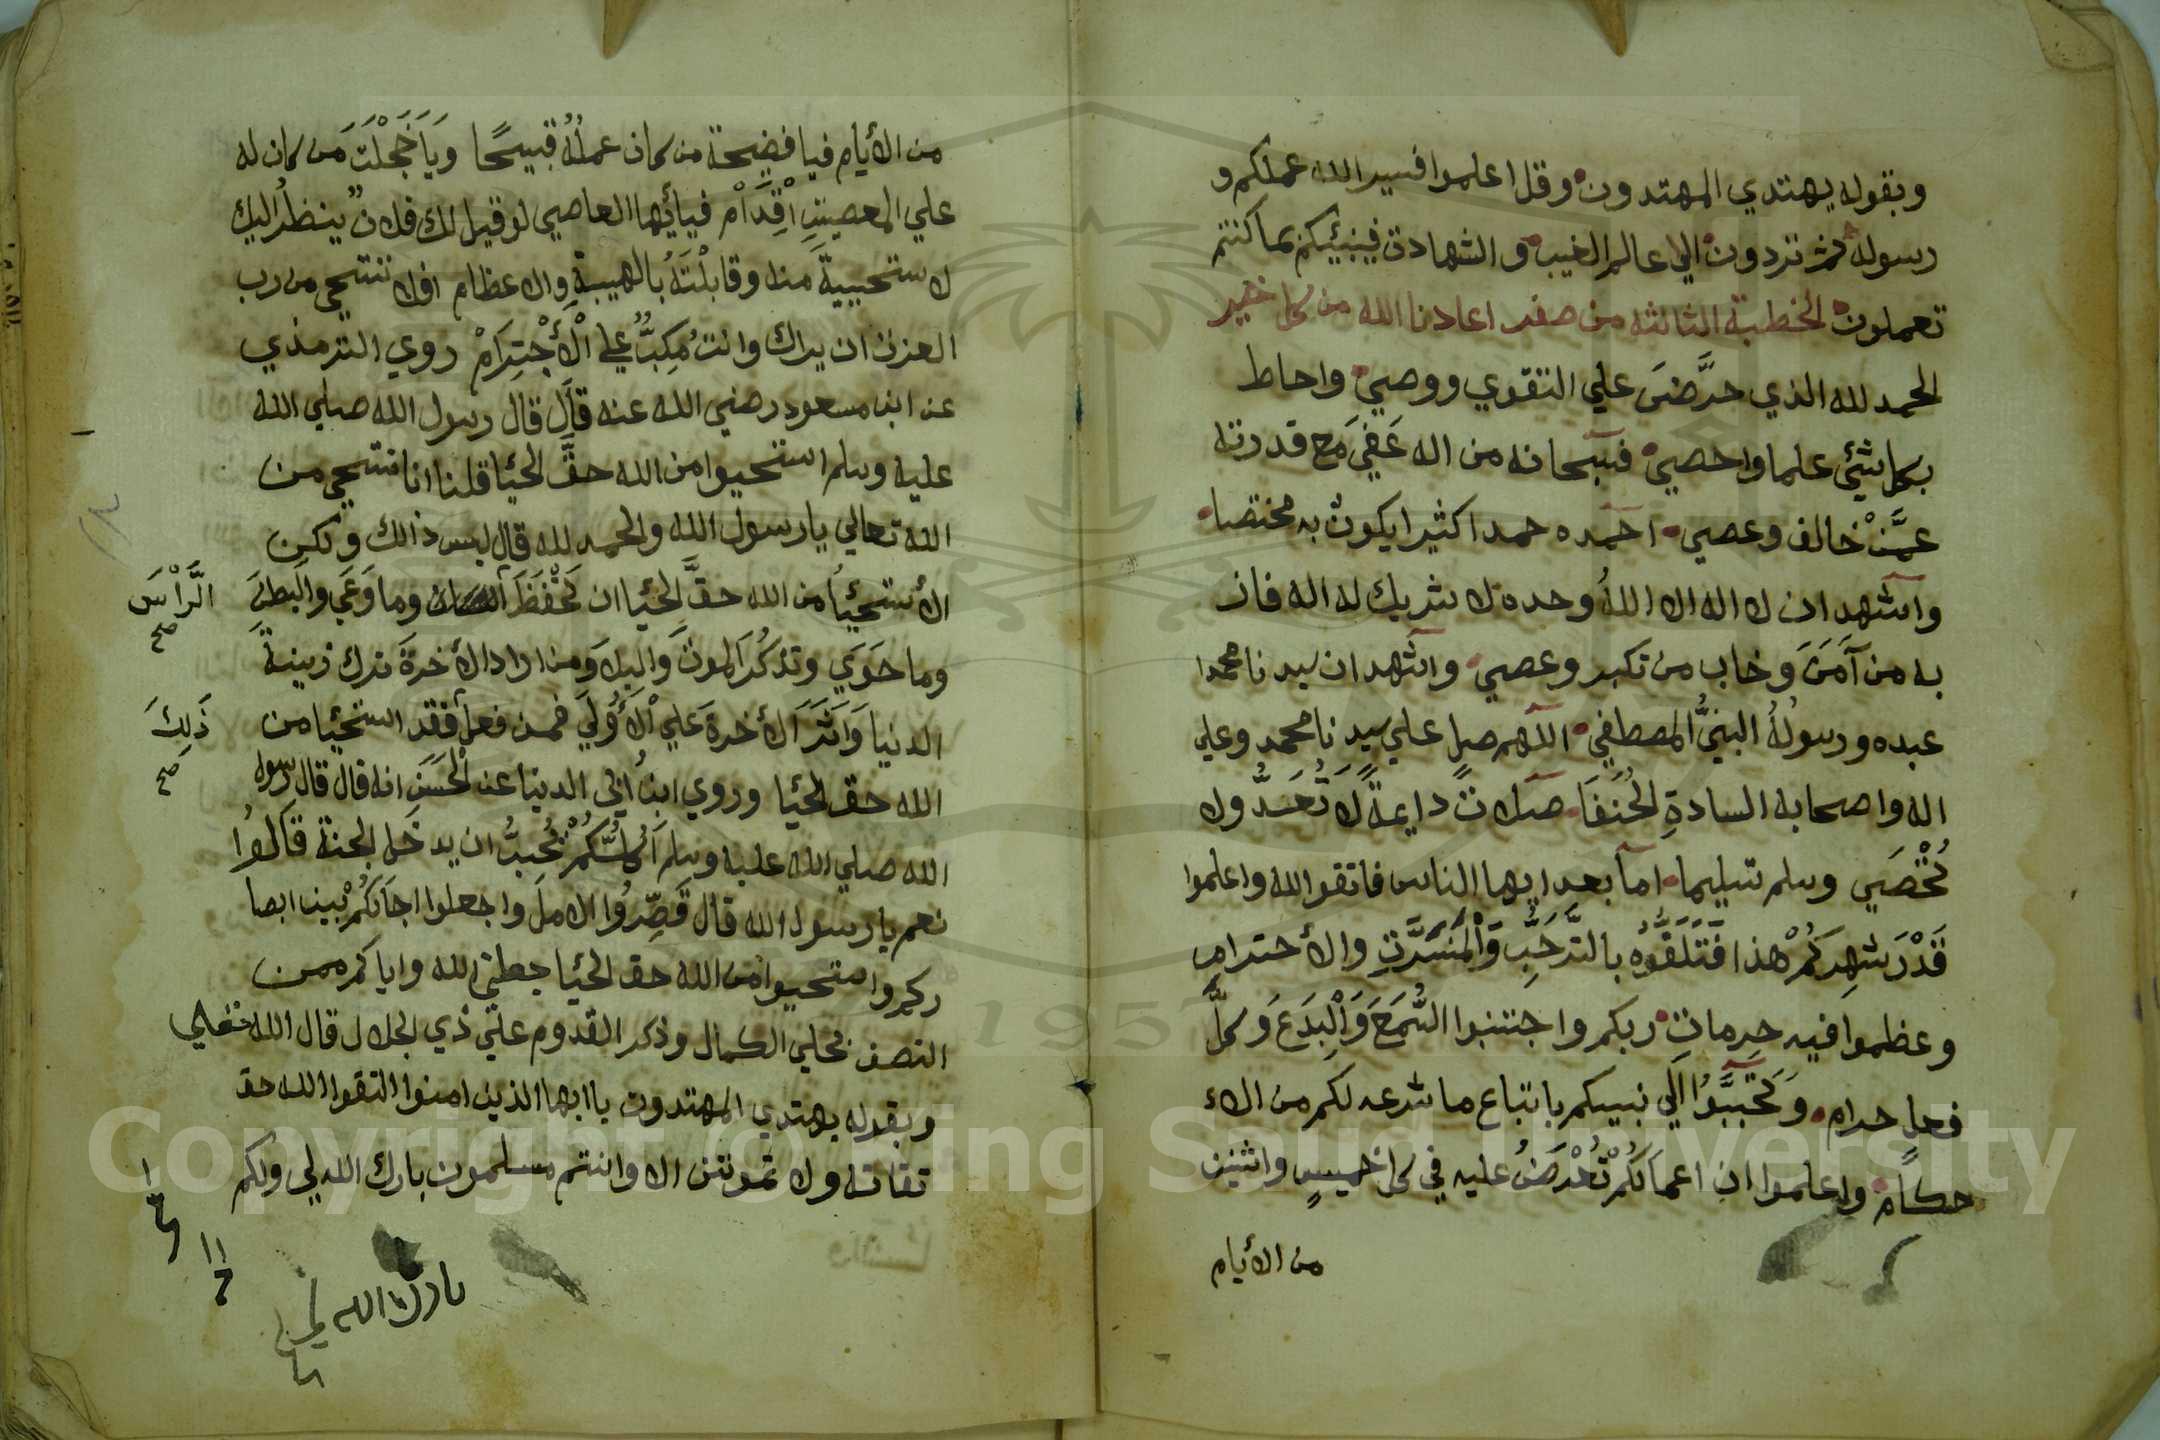 وبقوله يهتدي المهتدون وقل اعلموا فسيرا الله عملكم و
رسوله ثم تردون الي عالم الغيب والشهادة فينبئكم بما كنتم
تعملون الخطبة الثالثه من صفر اعادنا الله من كل خير
الحمد لله الذي حرَّضَ علي التقوي ووصي واحاط
بكل شيئ علما واحصي فسبحانه من اله عَفِيَ مع قدرته
عمَّنْ خالف وعصي احمده حمدا كثيرا يكون به مختصا
واشهد ان لا اله الا اللهُ وحده لا شريك له اله فاز
به من آمَنَ وخاب من تكبر وعصي واشهد ان سيدنا محمدا
عبده ورسولُهُ النبيُّ المصطفي اللهم صل علي سيدنا محمد وعلي
اله واصحابه السادةِ الحُنَفَا صلاتً دايمةً لا تُعَدُّ ولا
تُحْصَي وسلم تسليما اما بعد ايها الناس فاتقوا الله واعلموا
قَدْرَ شهرِكُمْ هذا فَتَلَقَّوْهُ بالتَّرَحُّبِ وَالْمَسَرَّتِ والأحترامِ
وعظموا فيه حرماتِ ربكم واجتنبوا السُّمَعَ وَالْبِدَعَ وَكلَّ
فعلٍ حرام وَتَحَبَّبُوُا اَلَي نبيكم باتباع ما شرعه لكم من الاء
حكام واعلموا ان اعمالَكُمْ تُعْرَضُ عليه في كل خميسٍ واثنين
من الأيام
من الأيام فيا فضيحة من كان عملُهُ قبيحًا وَيَا خَجْلَتَ مَن كان له
علي المعصيتِ اقْدَامْ فيا أيُّها العاصي لو قيل لك فلانٌ ينظرُ اليك
لاستحييتَ منه وقابلْتَهُ بالهيبةِ والاعظام افلا تستحي من رب
العزت ان يراك وانت مُكِبٌّ علي الْأَجْتِرَامْ روي الترمذي
عن ابن مسعود رضي الله عنه قال قال رسول الله صلي الله
عليه وسلم استحيوا من الله حقَّ الحيا قلنا انا نستحي من
الله تعالي يا رسول الله والحمد لله قال ليس ذالك ولكن
الأستحيأُ من الله حقَّ الحيا ان تَحْفَظَ وما وَعَي والبطنَ
الرَّأْسَ
صح
وما حَوَي وتذكُرَ الموتَ والبلا وَمن اراد الأخرةَ ترك زينةَ
الدنيا وَاَثَرَ الأخرةَ علي الْأَوُلَي فمن فعل فقد استحيا من
ذَلِكَ
صح
الله حق الحيا وروي ابنُ ابي الدنيا عن الْحَسَنِ انه قال قال رسول
الله صلي الله عليه وسلم اَكُلُّكُمْ يُحِبُّ ان يدخل الجنة قالُوا
نعم يا رسول الله قال قَصِّرُوا الامل واجعلوا اجالَكُمْ بين ابصا
ركم واستحيوا من الله حق الحيا جعلني الله واياكم ممن
اتصف بحلي الكمال وذكر القدوم علي ذي الجلال قال الله تعالي
وبقوله يهتدي المهتدون يا ايها الذين امنوا اتقوا الله حق
تقاته ولا تموتن الا وانتم مسلمون بارك الله لي ولكم
بارك الله لي